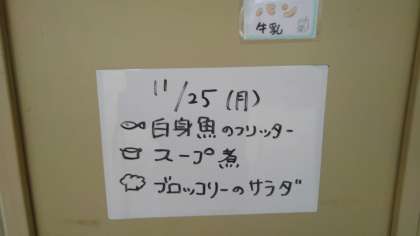 パン
牛乳
11/25(月)
白身魚のフリッター
スープ煮
ブロッコリーのサラダ